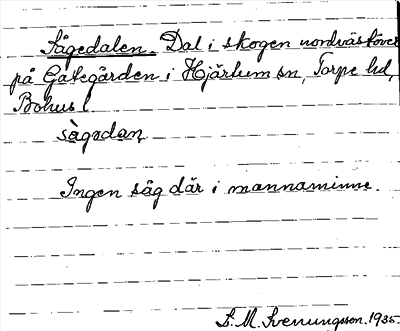 Sågedalen. Dal i skogen nordväståver
på Gategården i Hjärtum sn, Torpe hd,
Bohus l.
sàgədan
Ingen såg där i mannaminne.
S. M. Svenungsson. 1935.